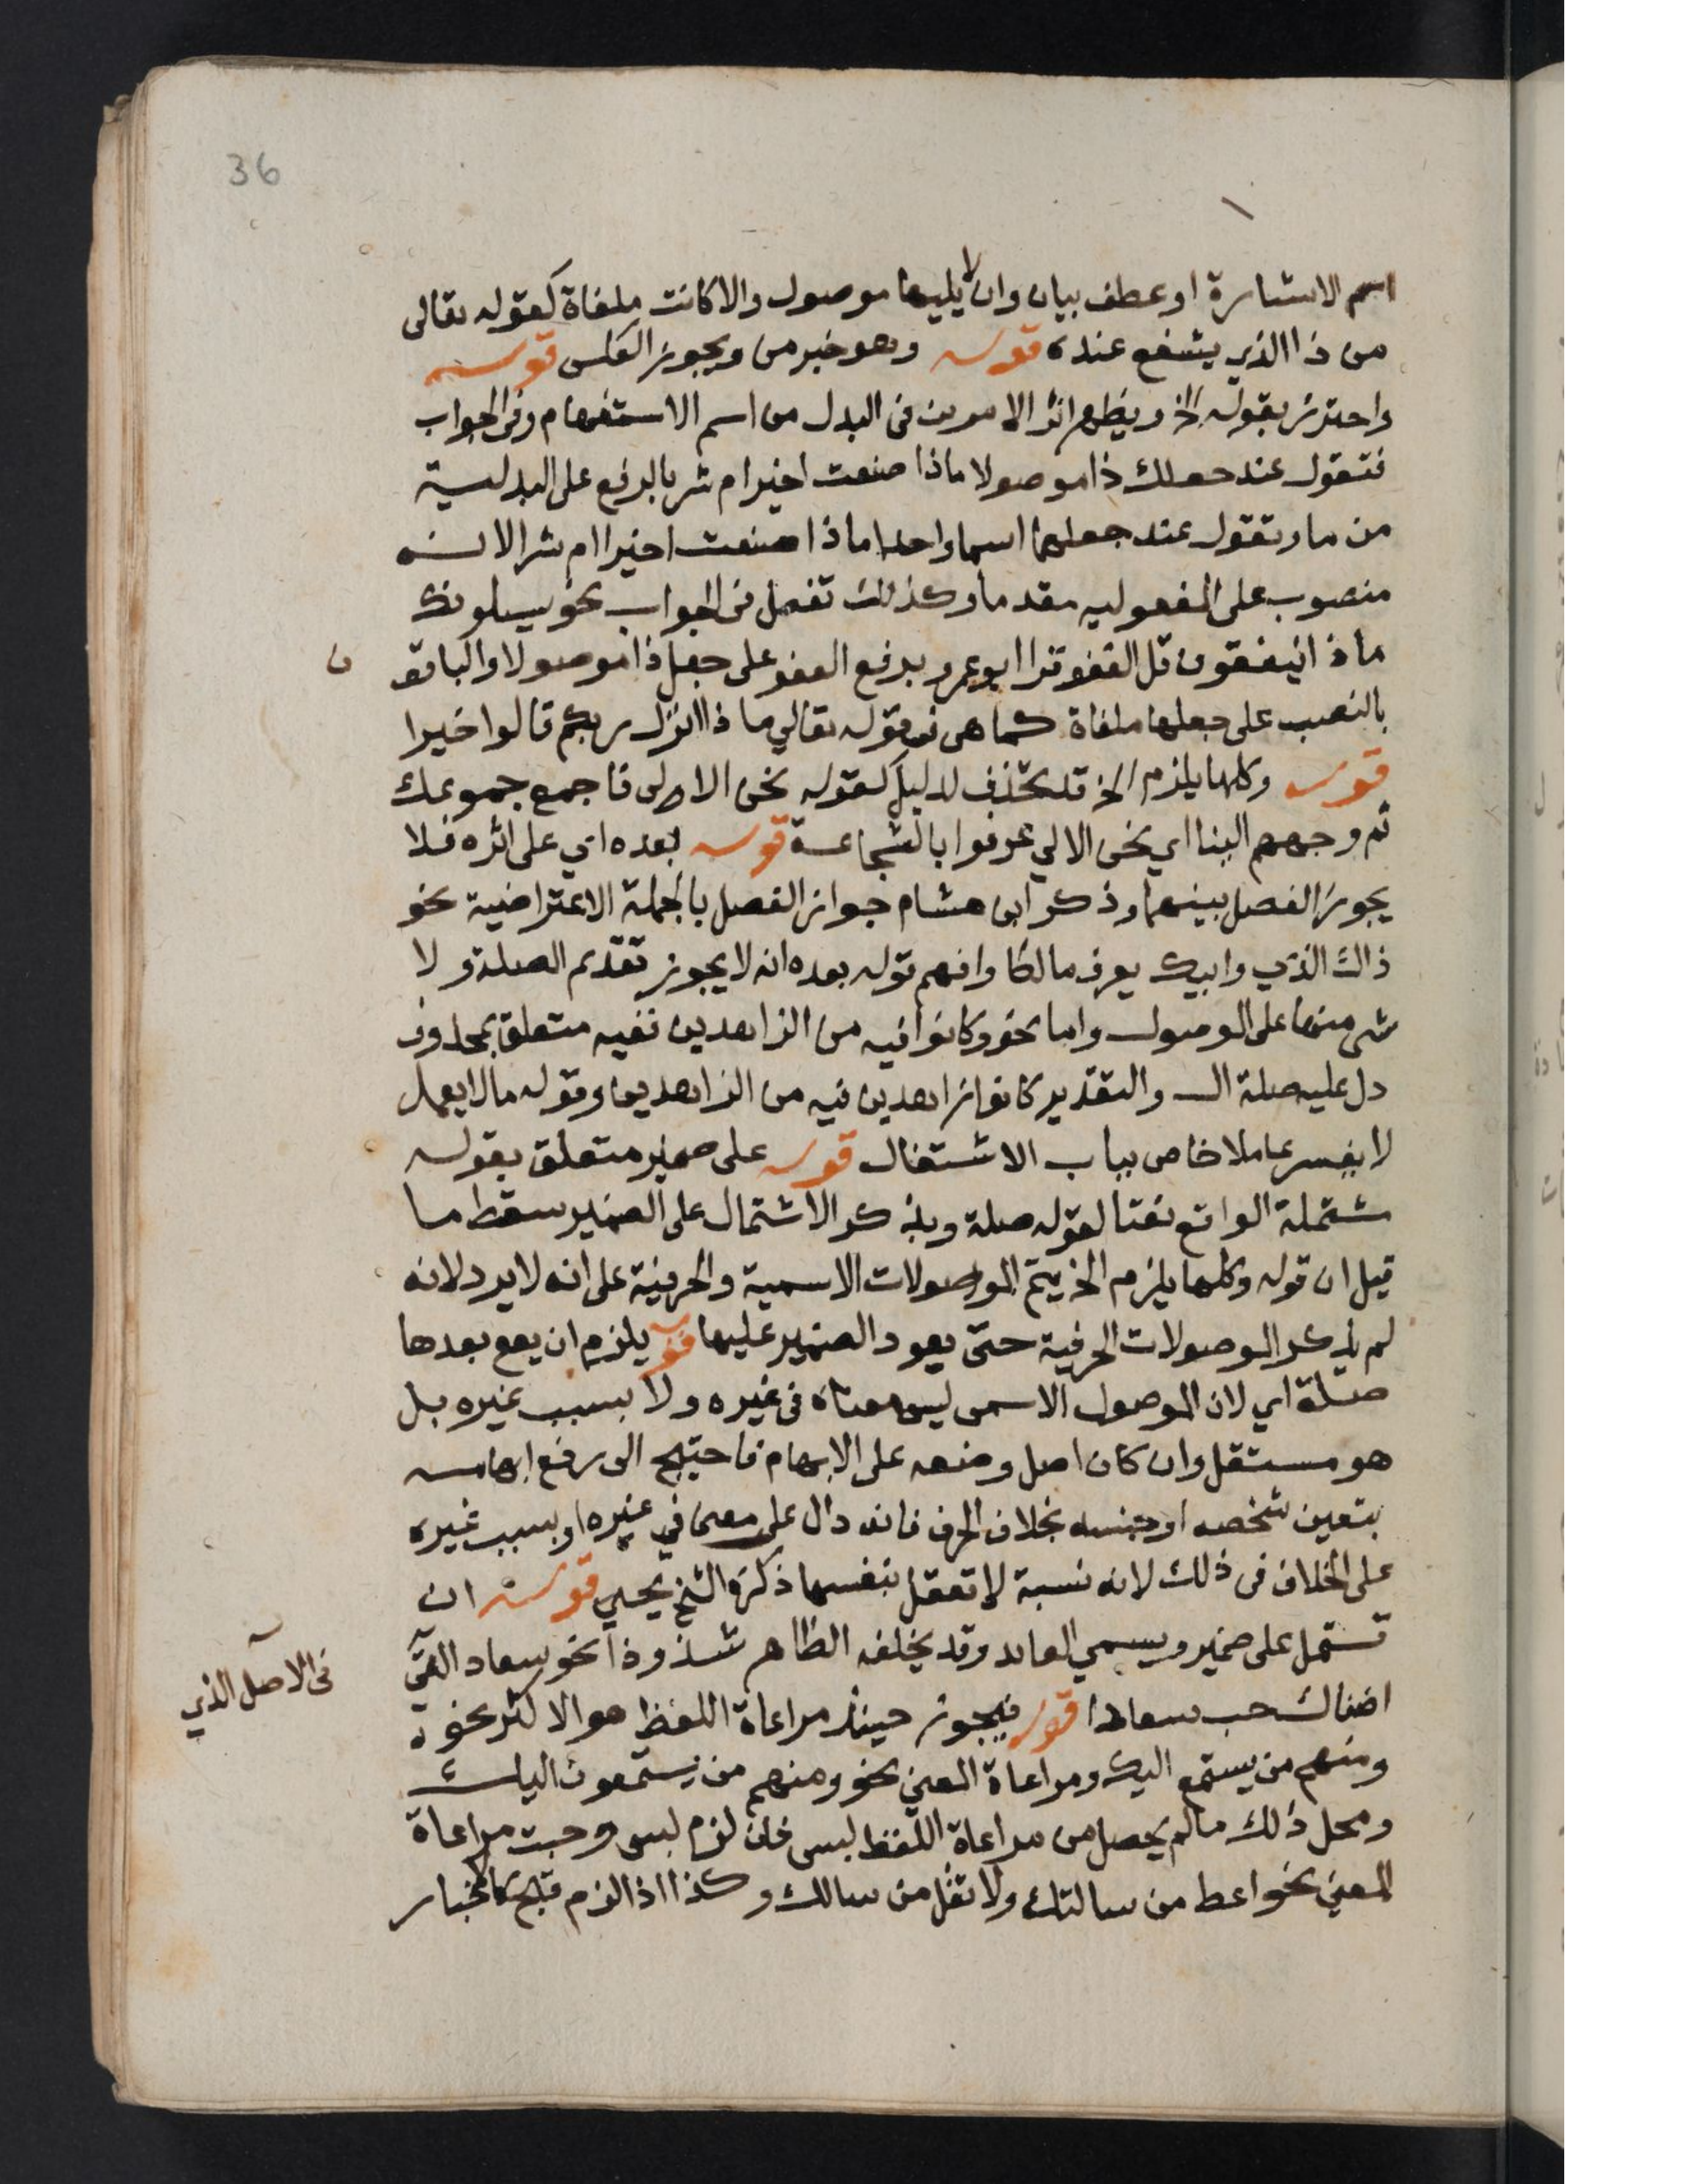 36
اسم الاشارة او عطف بيان وان لا يليها موصول والا كانت ملغاة كقوله تعالى
من ذا الذي يشفع عنده قوله وهو خبر من ويجوز العكس قوله
واحترز بقوله الخ ويظهر اثر الامرين في البدل من اسم الاستفهام وفي الجواب
فتقول عند جعلك ذا موصولا ماذا صنعت اخير ام شر بالرفع على البدلية
من ما وتقول عند جعلهما اسما واحدا ماذا صنعت اخيرا ام شرا لانه
منصوب على المفعولية مقدما وكذلك تفعل في الجواب نحو يسلونك
ماذا ينفقون قل العفو قرا ابو عمرو برفع العفو على جعل ذا موصولا والباقون
بالنصب على جعلها ملغاة كما هى في قوله تعالي ماذا انزل ربكم قالوا خيرا
قوله وكلها يلزم الخ قد تحذف لدليل كقوله نحن الاولى فاجمع جموعك
ثم وجههم الينا اي نحن الالي عرفوا بالشجاعة قوله بعده اي على اثره فلا
يجوز الفصل بينهما وذكر ابن هشام جواز الفصل بالجملة الاعتراضية نحو
ذاك الذي وابيك يعرف مالكا وافهم قوله بعده انه لا يجوز تقديم الصلة ولا
شى منها على الموصول واما نحو وكانوا فيه من الزاهدين ففيه متعلق بمحذوف
دل عليه صلة ال والتقدير كانوا زاهدين فيه من الزاهدين وقوله ما لا يعمل
لا يفسر عاملا خاص بباب الاشتغال قوله على ضمير متعلق بقوله
مشتملة الواقع نعتا لقوله صلة وبذكر الاشتمال على الضمير سقط ما
قيل ان قوله وكلها يلزم الخ يتم الموصولات الاسمية والحرفية على انه لا يرد لانه
لم يذكر الموصولات الحرفية حتى يعود الضمير عليها قوله يلزم ان يقع بعدها
صلة اي لان الموصول الاسمى ليس معناه في غيره ولا بسبب غيره بل
هو مستقل وان كان اصل وضعه على الابهام فاحتيج الى رفع ابهامه
بتعين شخصه او جنسه بخلاف الحرف فانه دال على معنى في غيره او بسبب غيره
على الخلاف في ذلك لانه نسبة لا تعقل بنفسها ذكره الشيخ يحيي قوله ان
تشتمل على ضمير ويسمي العايد وقد يخلفه الظاهر شذوذا نحو سعاد التي
اضناك حب سعادا قوله فيجوز حينئذ مراعاة اللفظ هو الاكثر نحو
في الاصل الذي
ومنهم من يستمع اليك ومراعاة المعني نحو ومنهم من يستمعون اليك
ومحل ذلك ما لم يحصل من مراعاة اللفظ لبس فان لزم لبس وجبت مراعاة
المعني نحو اعط من سالتك ولا تقل من سالك وكذا اذا لزم قبح كالاخبار